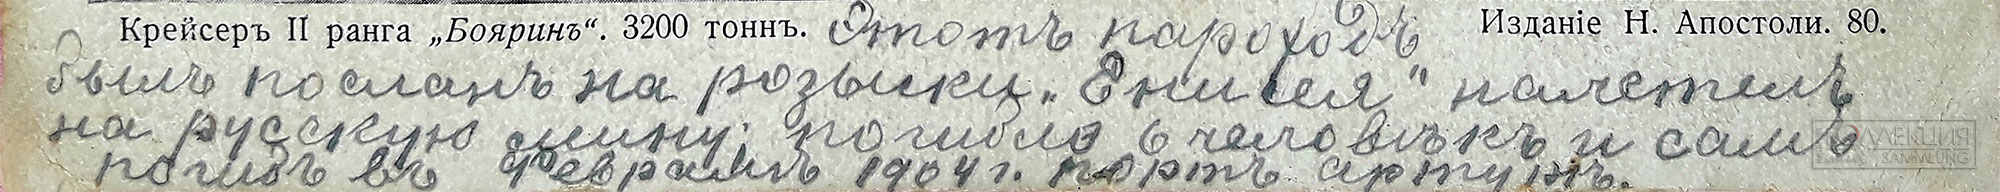 Крейсеръ II ранга „Бояринъ“. 3200 тоннъ. Этотъ пароходъ Изданіе Н. Апостоли. 80.
былъ посланъ на розыски „Енисея" налетелъ
на русскую мину. погибло 6 человѣкъ и самъ
погибъ въ Февралѣ 1904 г. портъ артуръ.
КОЛЛЕКЦИЯ
SAMMLUNG